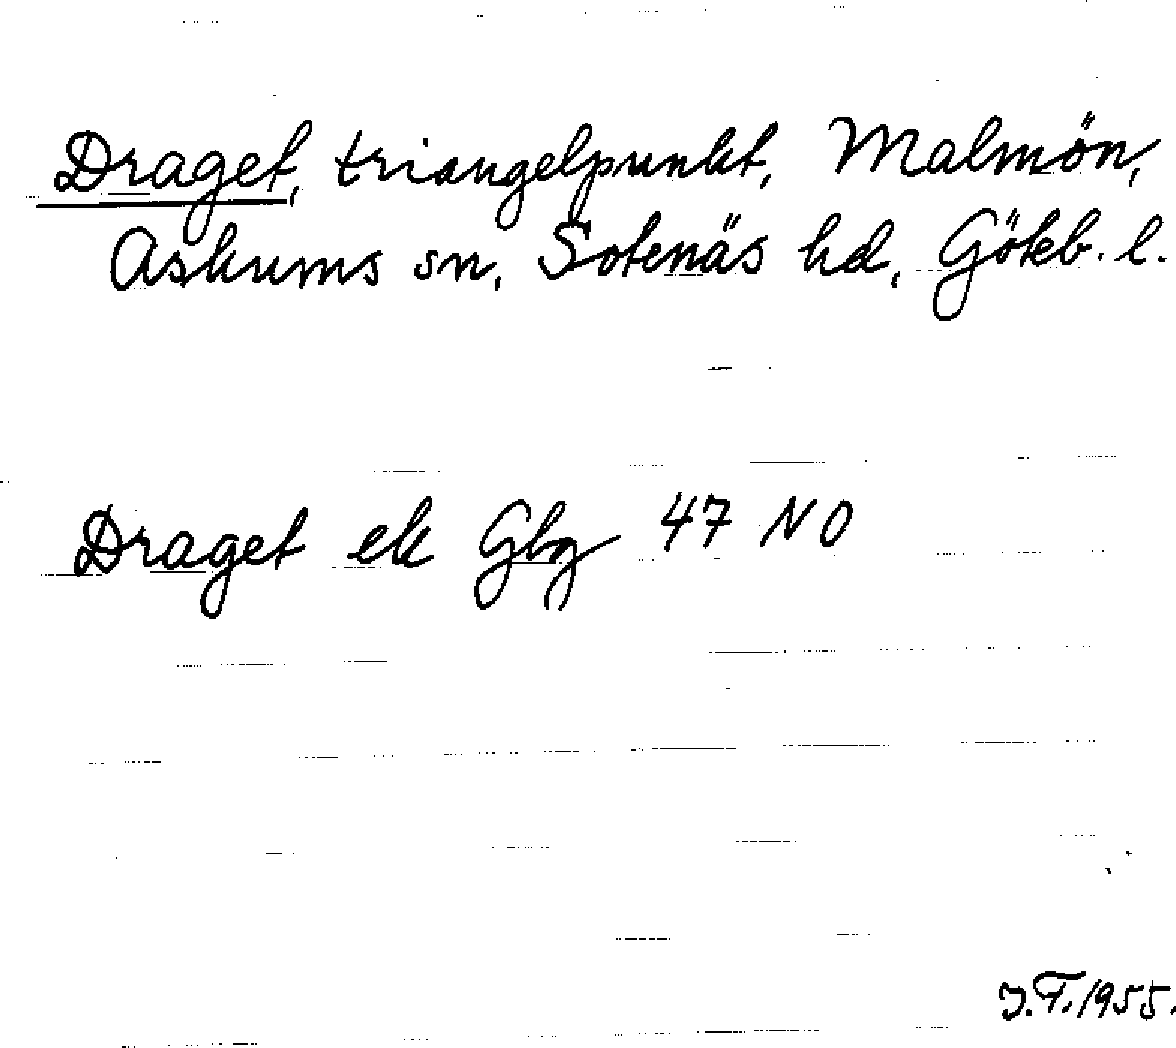 Draget, triangelpunkt, Malmön,
Askums sn, Sotenäs hd, Göteb. l.
Draget ek Gbg 47 NO
J.T. 1955.